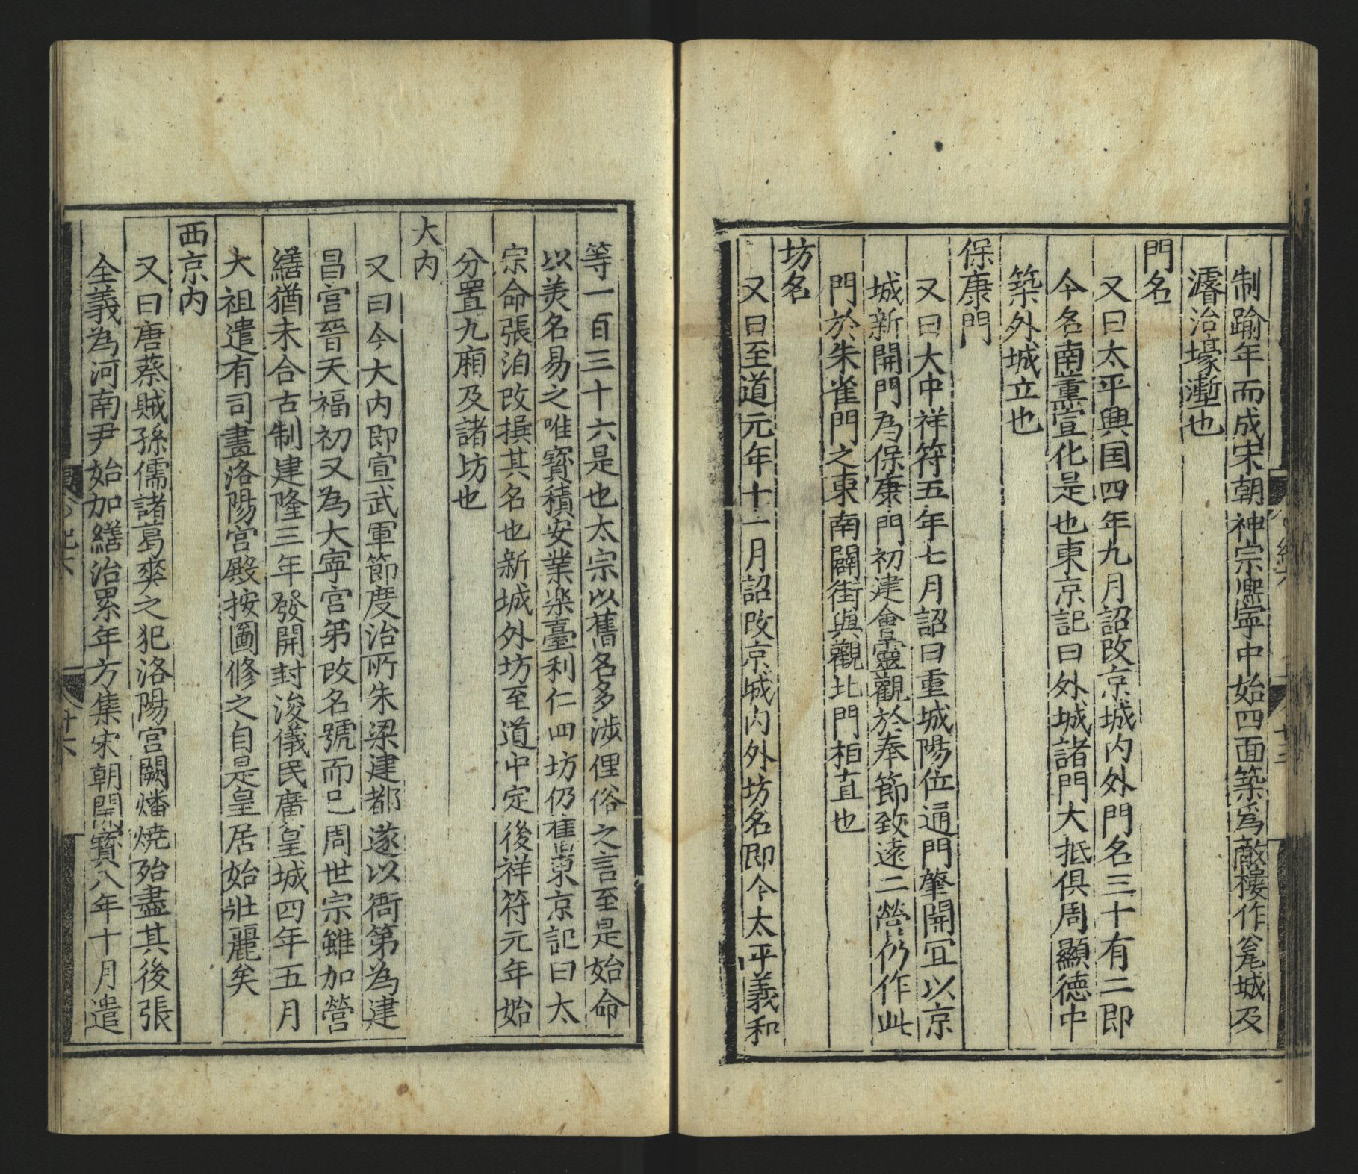 制踰年而成宋朝神宗熙寧中始四面築爲敵樓作瓮城及
濬治壕壍也
門名
又曰太平興国四年九月詔改京城内外門名三十有二即
今名南薫宣化是也東京記曰外城諸門大抵俱周顯徳中
築外城立也
保康門
又曰大中祥符五年七月詔曰重城陽位通門肇開冝以京
城新開門為保康門初建會靈觀於奉節致遠二營仍作此
門於朱雀門之東南闢街與觀北門相直也
坊名
又曰至道元年十一月詔改京城内外坊名即今太平義和
等一百三十六是也太宗以舊名多涉俚俗之言至是始命
以美名易之唯寳積安業樂臺利仁四坊仍舊東京記曰太
宗命張洎改撰其名也新城外坊至道中定後祥符元年始
分置九廂及諸坊也
大内
又曰今大内即宣武軍節度治所朱梁建都遂以衙第為建
昌宫晉天福初又為大寧宫苐改名號而已周世宗雖加營
繕猶未合古制建隆三年發開封浚儀民廣皇城四年五月
大祖遣有司畫洛陽宫殿按圖修之自是皇居始壯麗矣
西京内
又曰唐蔡賊孫儒諸葛爽之犯洛陽宫闕燔燒殆盡其後張
全義為河南尹始加繕治累年方集宋朝開寳八年十月遣